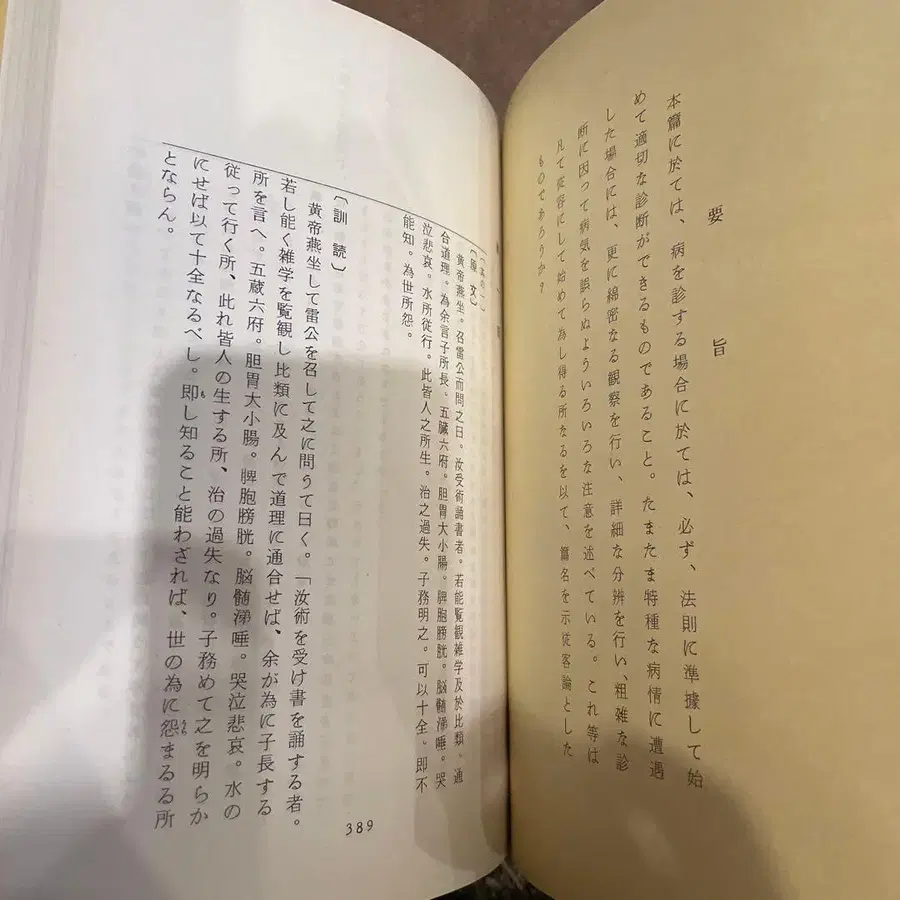 要旨
本篇に於ては、病を診する場合に於ては、必ず、法則に準據して始
めて適切な診断ができるものであること。たまたま特種な病情に遭遇
した場合には、更に綿密なる観察を行い、詳細な分辨を行い、粗雑な診
断に因って病気を誤らぬよういろいろな注意を述べている。これ等は
凡て従容にして始めて為し得る所なるを以て、篇名を示従客論とした
ものであろうか?
〔其の一〕
〔原文〕
黄帝燕坐。召雷公而問之曰。汝受術誦書者。若能覧観雑学及於比類、通
合道理。為余言子所長、五臓六府。胆胃大小腸。脾胞膀胱。脳髄涕唾。哭
泣悲哀。水所従行。此皆人之所生。治之過失。子務明之。可以十全。即不
能知。為世所怨。
〔訓読〕
黄帝燕坐して雷公を召して之に問うて曰く。「汝術を受け書を誦する者。
若し能く雑学を覧観し比類に及んで道理に通合せば、余が為に子長する
所を言へ。五蔵六府。胆胃大小腸。脾胞膀胱。脳髄涕唾。哭泣悲哀。水の
従って行く所、此れ皆人の生する所、治の過失なり。子務めて之を明らか
にせば以て十全なるべし。即し知ること能わざれば、世の為に怨まるる所
とならん。
389